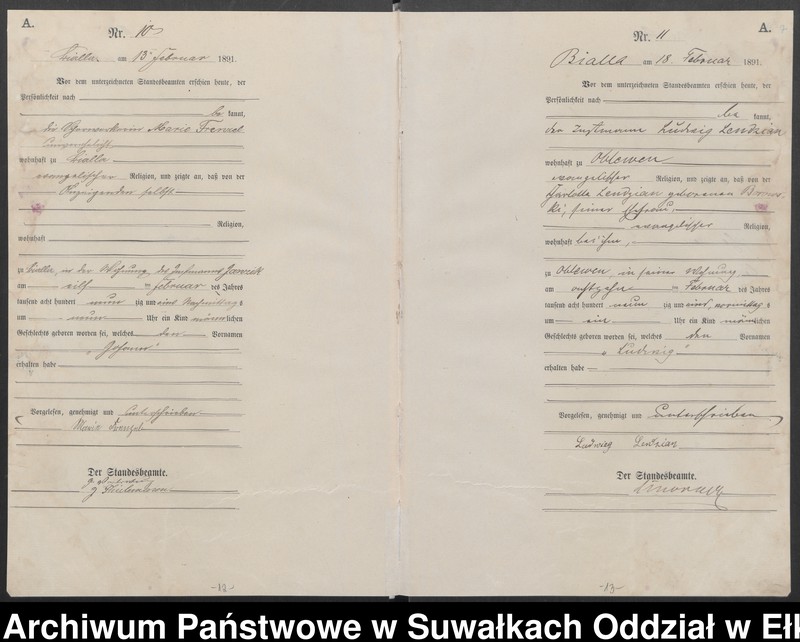 A.
Nr. 10
Bialla am 13 Februar 1891.
Vor dem unterzeichneten Standesbeamten erschien heute, der
Persönlichkeit nach
be kannt,
die Marie Frenzel
wohnhaft zu Bialla
evangelischer Religion, und zeigte an, daß von der
Anzeigenden selbst
Religion,
wohnhaft
zu Bialla, in der Wohnung des Instmanns
am elf ten Februar des Jahres
tausend acht hundert neun zig und eins Nachmittag s
um neun Uhr ein Kind männlichen
Geschlechts geboren worden sei, welches den Vornamen
"Johann"
erhalten habe
Vorgelesen, genehmigt und unterschrieben
Marie Frenzel
Der Standesbeamte.
-12-
A.
Nr. 11
Bialla am 18 Februar 1891.
Vor dem unterzeichneten Standesbeamten erschien heute, der
Persönlichkeit nach
be kannt,
der Instmann Ludwig Lendzian
wohnhaft zu Oblewen
evangelischer Religion, und zeigte an, daß von der
Charlotte Lendzian geborenen
seiner Ehefrau,
evangelischer Religion,
wohnhaft bei ihm,
zu Oblewen, in seiner Wohnung
am Februar des Jahres
tausend acht hundert neun zig und eins, vormittag s
um ein Uhr ein Kind männlichen
Geschlechts geboren worden sei, welches den Vornamen
"Ludwig"
erhalten habe
Vorgelesen, genehmigt und unterschrieben
Ludwieg Lendzian
Der Standesbeamte.
-13-
Archiwum Państwowe w Suwałkach Oddział w Eł